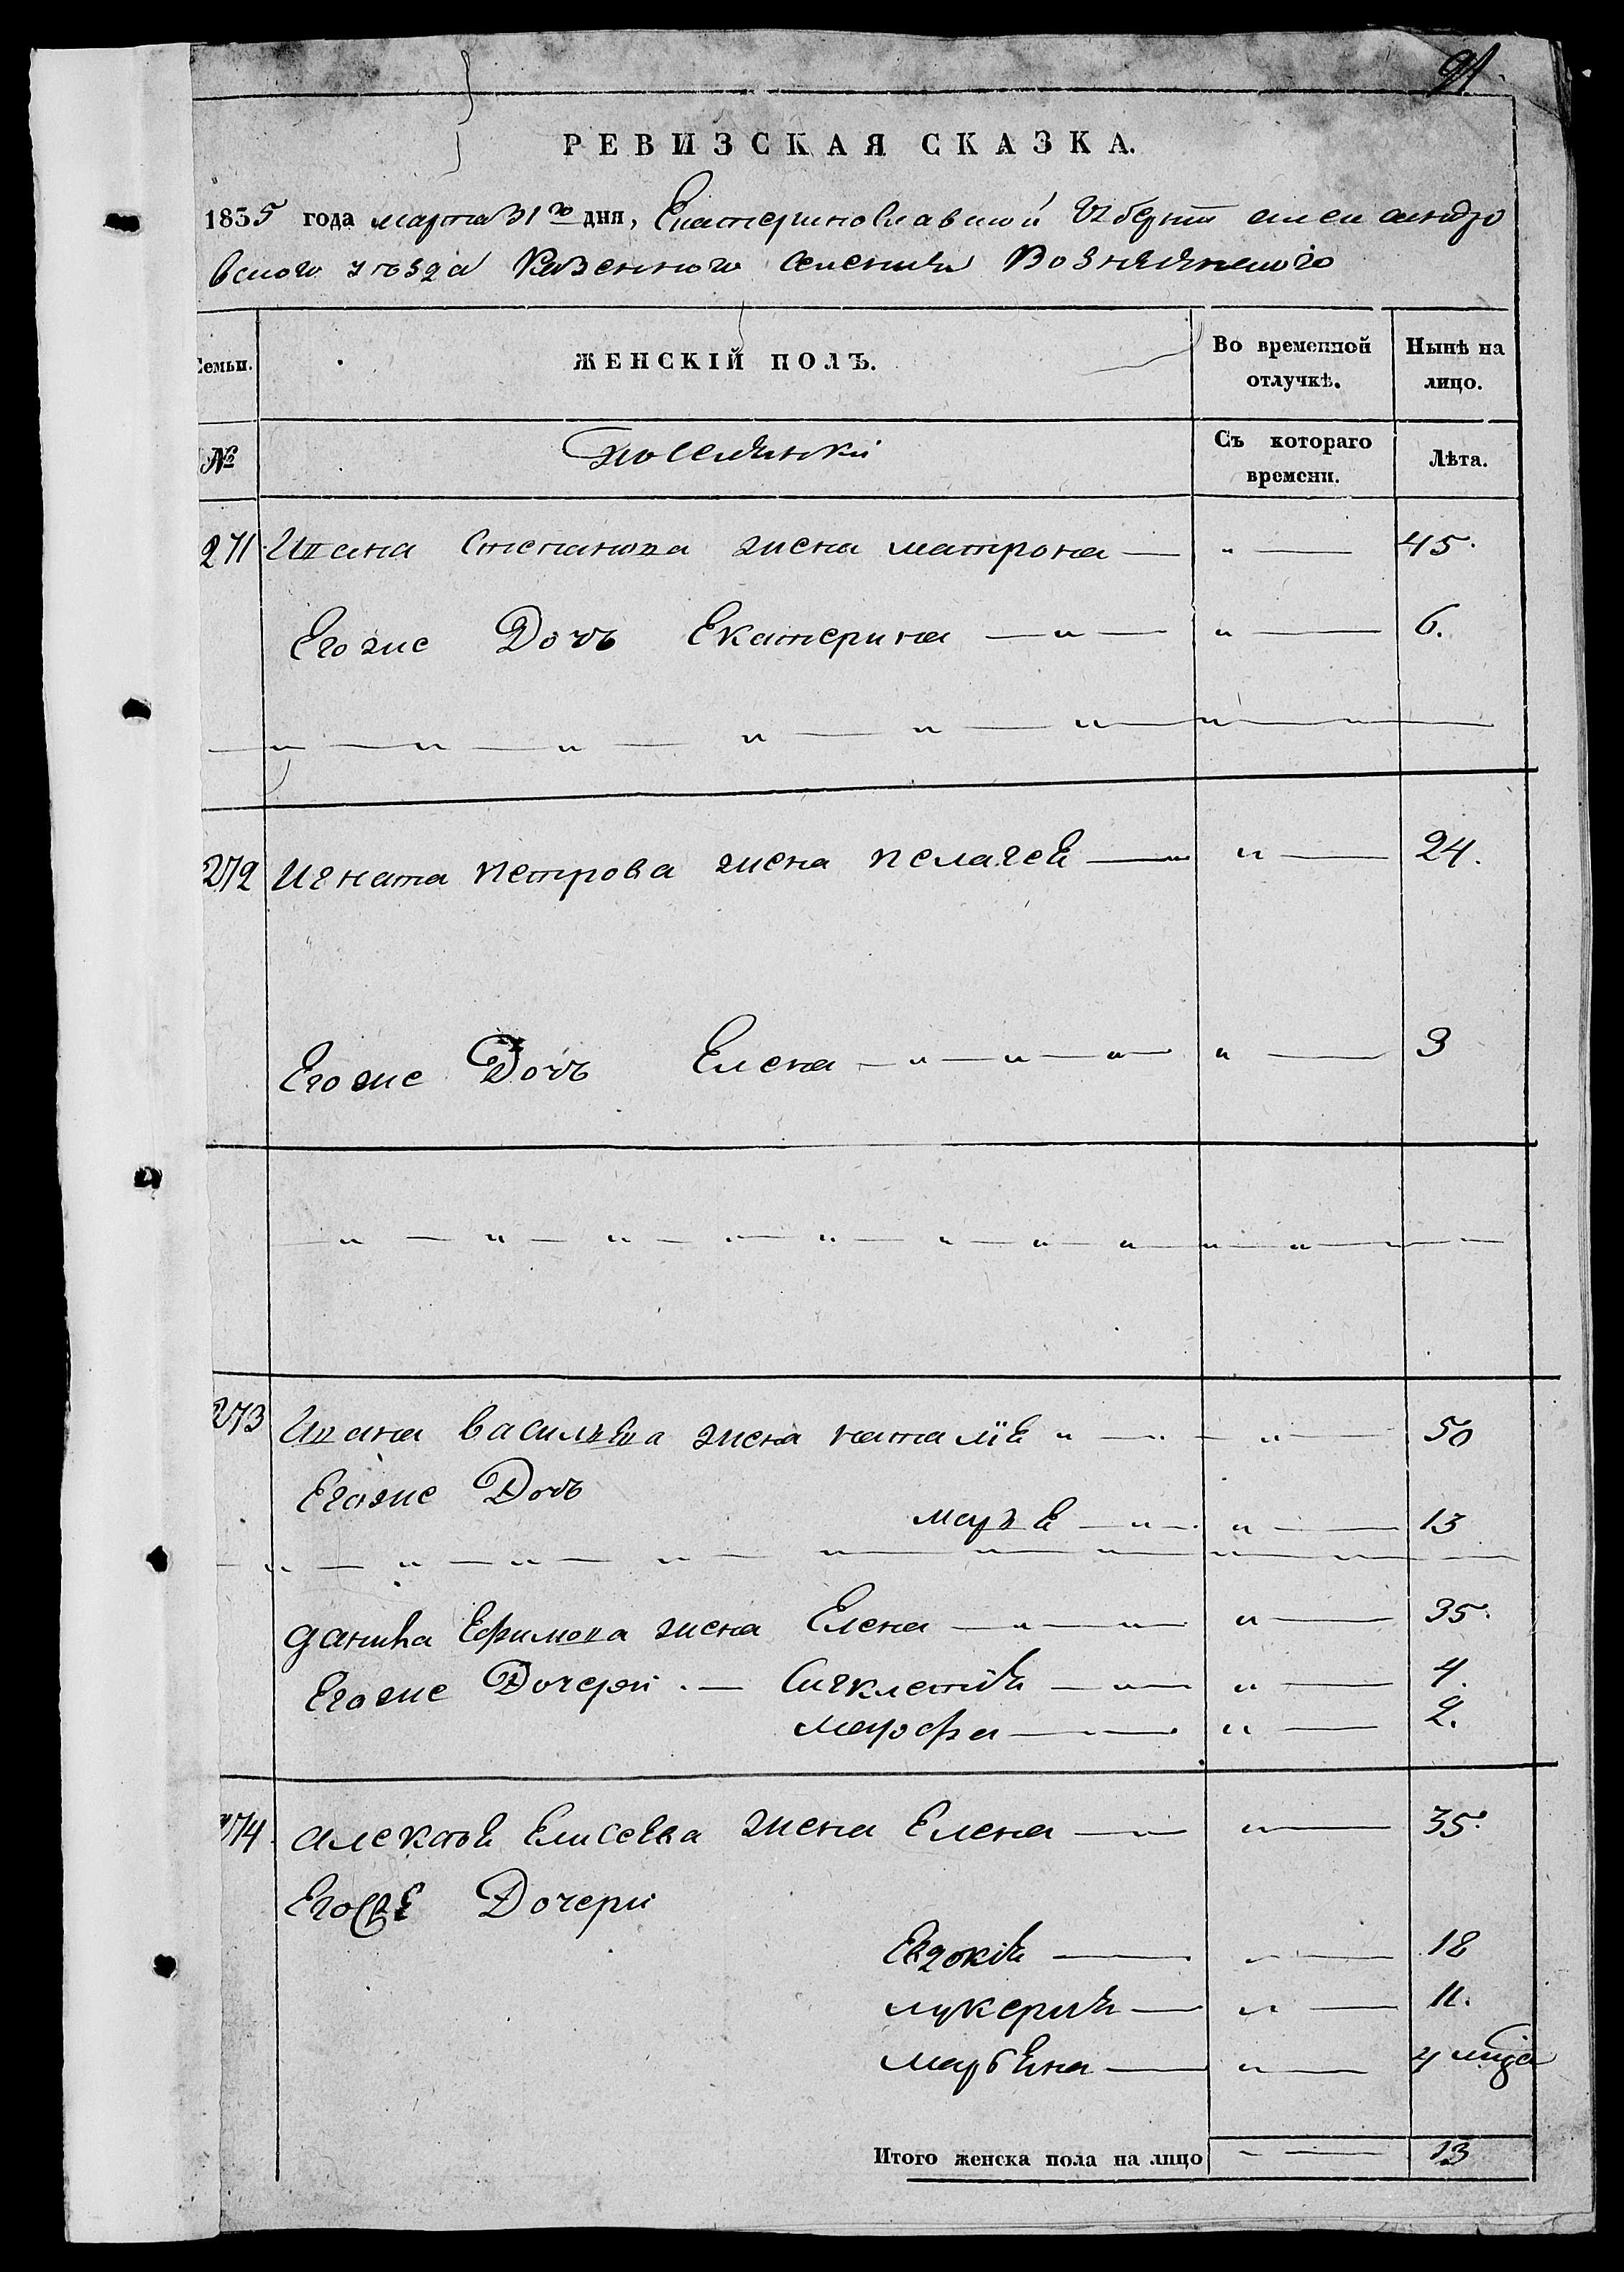 91
РЕВИЗСКАЯ СКАЗКА.
1835 года марта 31го дня, Екатеринославской губерніи александро
вского уѣзда Казенного селенія Вознѣсенского
Семьи. ЖЕНСКІЙ ПОЛЪ. Во временной отлучкѣ. Нынѣ на лицо.
№ поселянки Съ котораго времени. Лѣта.
271 Ивана Степанова жена матрона — „ — 45.
Егоже Дочь Екатерина — „ — „ — 6.
272 Игната петрова жена пелагея — „ — 24.
Егоже Дочь Елена — „ — „ — „ — „ — 3
273 Ивана васильева жена наталія „ — „ — „ — 50
Егоже Дочь
марья — „ — „ — 13
данила Ефимова жена Елена — „ — „ — „ — 35.
Егоже Дочери . — Сигклетія — „ — „ — 4.
марфа — „ — 2.
274 алексѣя Елисева жена Елена — „ — 35.
Егоже Дочери
Евдокія — „ — 18
лукерия — „ — 11.
марѣна — „ —
Итого женска пола на лицо „ — 13